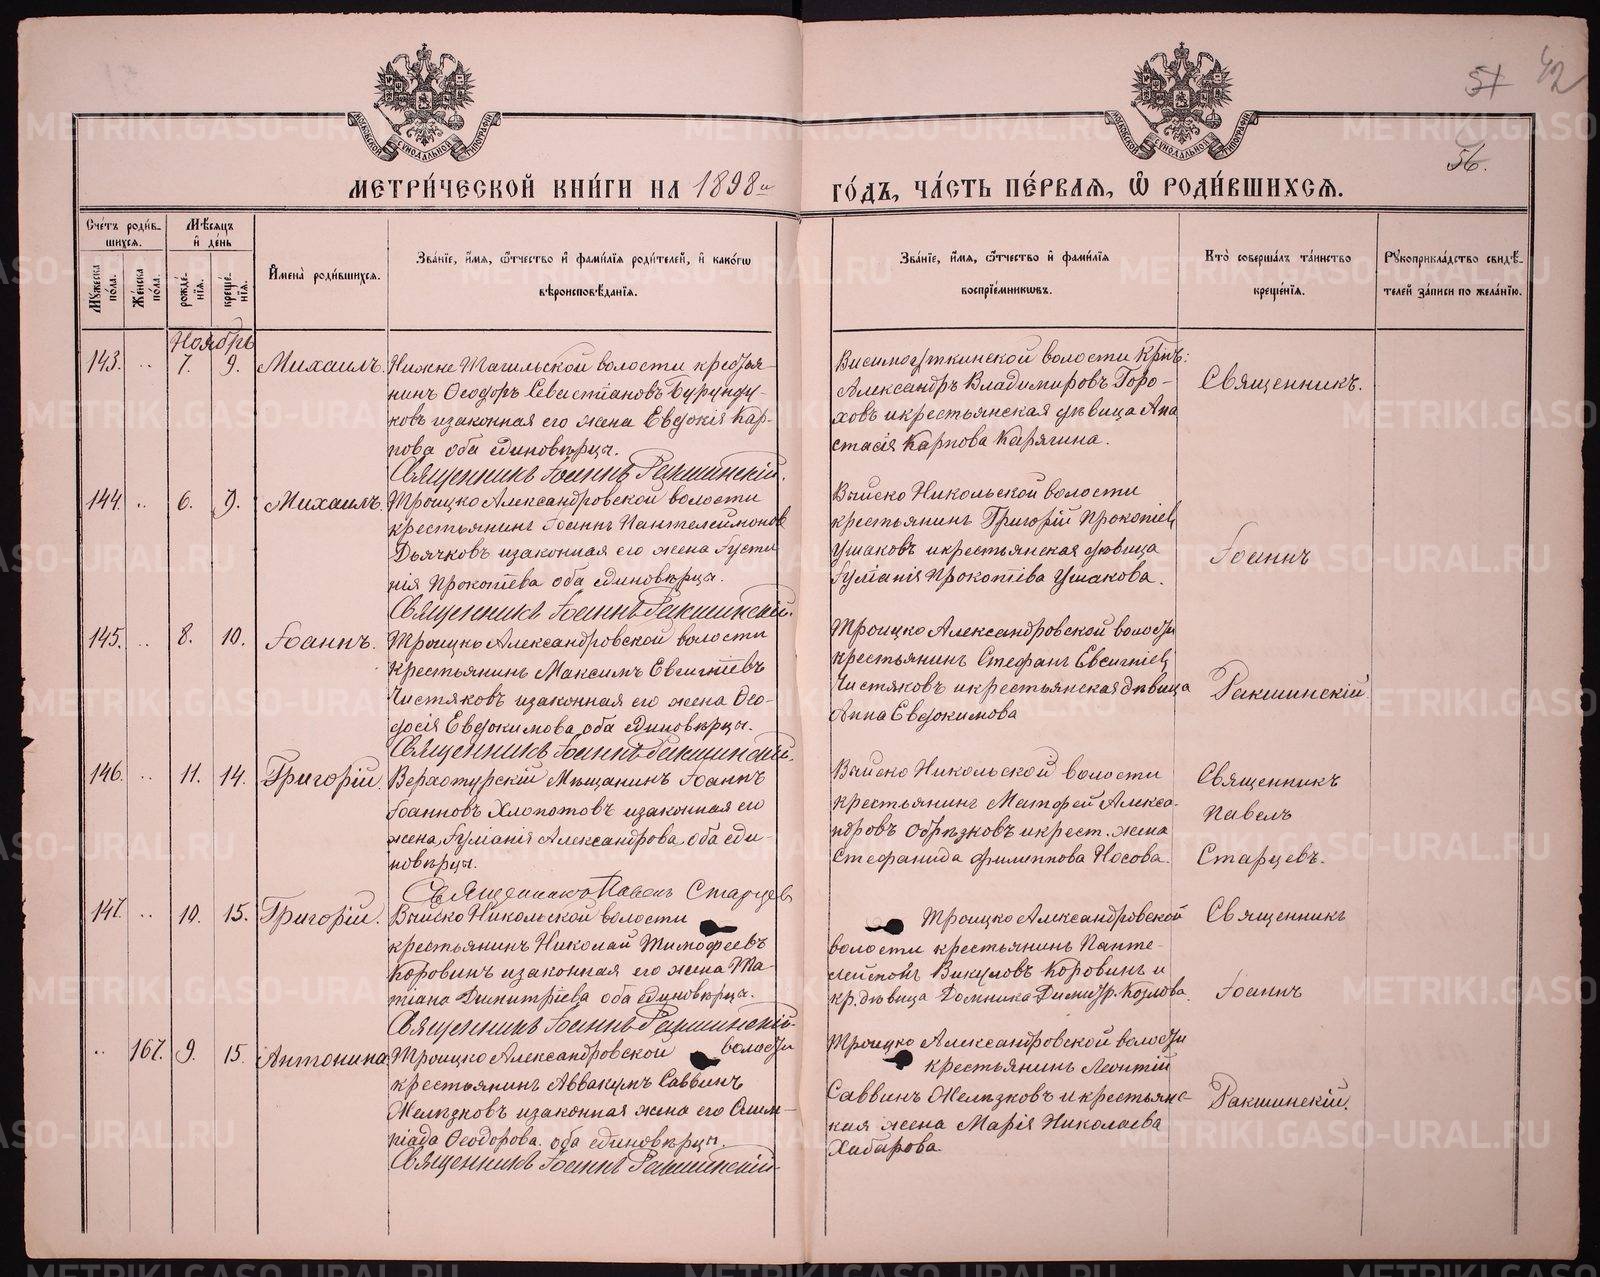 57 42
56.
МОСКОВСКОЙ СУНОДАЛЬНОЙ ТИПОГРАФІИ
МОСКОВСКОЙ СУНОДАЛЬНОЙ ТИПОГРАФІИ
МЕТРИ́ЧЕСКОЙ КНИ́ГИ НА 1898й ГО́ДЪ, ЧА́СТЬ ПЕ́РВАЯ, Ѡ РОДИ́ВШИХСЯ.
Счётъ роди́в-
шихся.
Му́жеска по́ла.
Же́нска по́ла.
Мѣ́сяцъ
и҆ де́нь
рожде́-
нія.
креще́-
нія.
И҆мена̀ роди́вшихся.
Зва́ніе, и҆́мя, ѻ҆́тчество и҆ фами́лія роди́телей, и҆ како́гѡ
вѣроисповѣ́данія.
Зва́ніе, и҆́мя, ѻ҆́тчество и҆ фами́лія
воспріе́мниковъ.
Кто̀ соверша́лъ та́инство
креще́нія.
Рꙋкоприкла́дство свидѣ́-
телей за́писи по жела́нію.
Ноябрь
143. .. 7. 9. Михаилъ.
Нижне Тагильской волости крестья-
нинъ Ѳеодоръ Севастіановъ Бурунду-
ковъ и законная его жена Евдокія Кар-
пова оба единовѣрцы.
Священникъ Іоаннъ Ракшинскій.
Висимоуткинской волости крест:
Александръ Владиміровъ Горо-
ховъ и крестьянская дѣвица Ана
стасія Карпова Карягина.
Священникъ.
144. .. 6. 9. Михаилъ.
Троицко Александровской волости
крестьянинъ Іоаннъ Пантелеймонов
Дьячковъ и законная его жена Іусти
нія Прокопіева оба единовѣрцы.
Священникъ Іоаннъ Ракшинскій.
Выйско Никольской волости
крестьянинъ Григорій Прокопіев
Ушаковъ и крестьянская дѣвица
Іуліанія Прокопіева Ушакова.
Іоаннъ
145. .. 8. 10. Іоаннъ.
Троицко Александровской волости
крестьянинъ Максимъ Евсигніевъ
Чистяковъ и законная его жена Ѳео-
досія Евдокимова оба единовѣрцы.
Священникъ Іоаннъ Ракшинскій.
Троицко Александровской волости
крестьянинъ Стефанъ Евсигніев
Чистяковъ и крестьянская дѣвица
Анна Евдокимова
Ракшинскій
146. .. 11. 14. Григорій.
Верхотурскій Мѣщанинъ Іоаннъ
Іоанновъ Хлопотовъ и законная его
жена Іуліанія Александрова оба еди-
новѣрцы.
Священникъ Павелъ Старцевъ
Выйско Никольской волости
крестьянинъ Матфей Алекса-
ндровъ Обрѣзковъ и крест. жена
Стефанида Филиппова Носова.
Священникъ
Павелъ
Старцевъ.
147. .. 10. 15. Григорій.
Выйско Никольской волости
крестьянинъ Николай Тимофеевъ
Коровинъ и законная его жена Та-
тіана Димитріева оба единовѣрцы.
Священникъ Іоаннъ Ракшинскій.
Троицко Александровской
волости крестьянинъ Панте-
леймонъ Викуловъ Коровинъ и
кр. дѣвица Домника Димитр. Козлова.
Священникъ
Іоаннъ
.. 167. 9. 15. Антонина.
Троицко Александровской волости
крестьянинъ Аввакумъ Саввинъ
Желѣзковъ и законная жена его Олим-
піада Ѳеодорова. оба единовѣрцы.
Священникъ Іоаннъ Ракшинскій.
Троицко Александровской волости
крестьянинъ Леонтій
Саввинъ Желѣзковъ и крестьянс-
кая жена Марія Николаева
Хабарова.
Ракшинскій.
METRIKI.GASO-URAL.RU